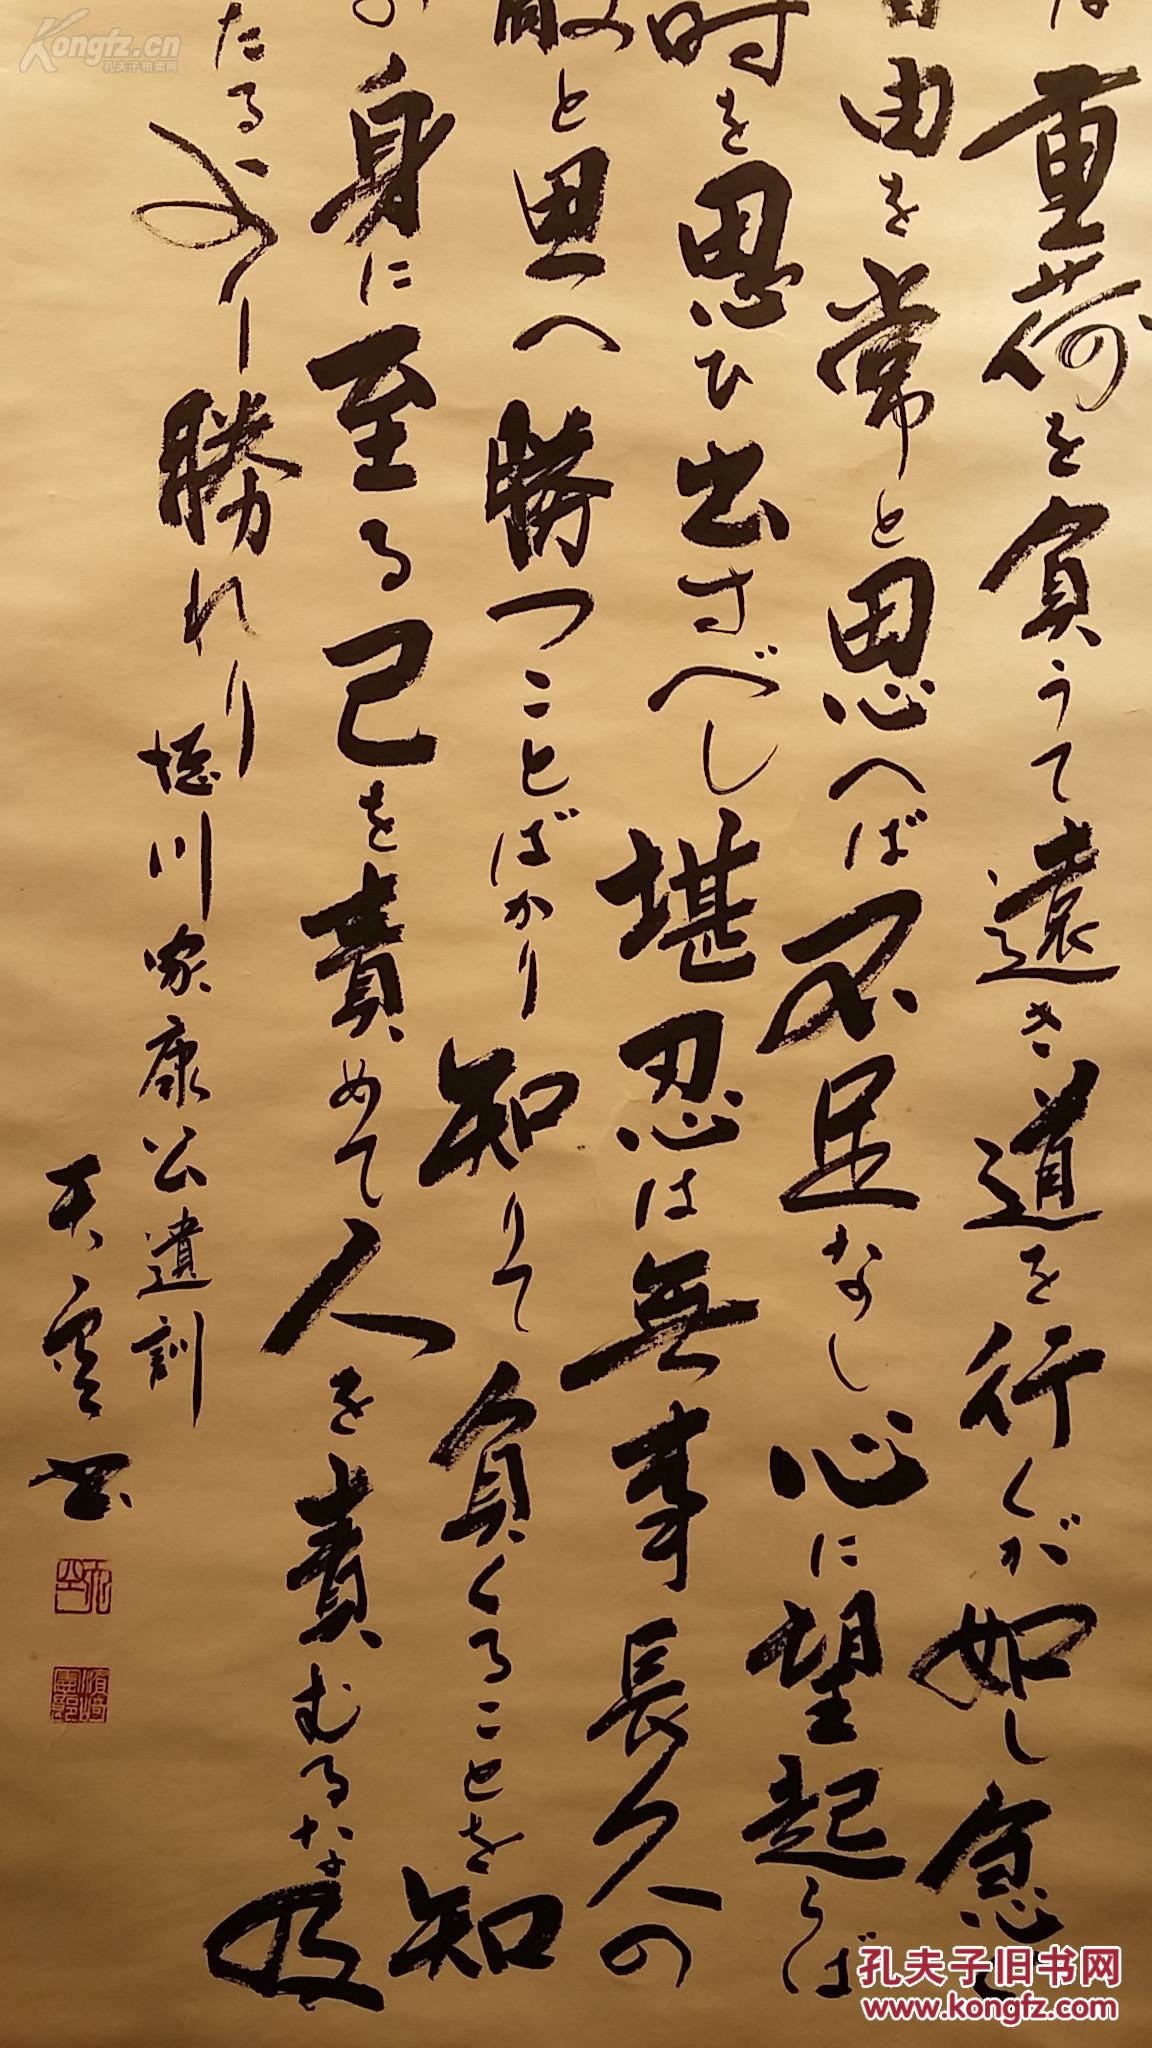 は重荷を負うて遠き道を行くが如し急ぐ
自由を常と思へば不足なし心に望起らば
時を思ひ出すべし堪忍は無事長久の
敵と思へ勝つことばかり知りて負くることを知
身に至る己を責めて人を責むるな及
たるより勝れり
徳川家康公遺訓
天雲書
Kongfz.cn
孔夫子拍卖网
孔夫子旧书网
www.kongfz.com